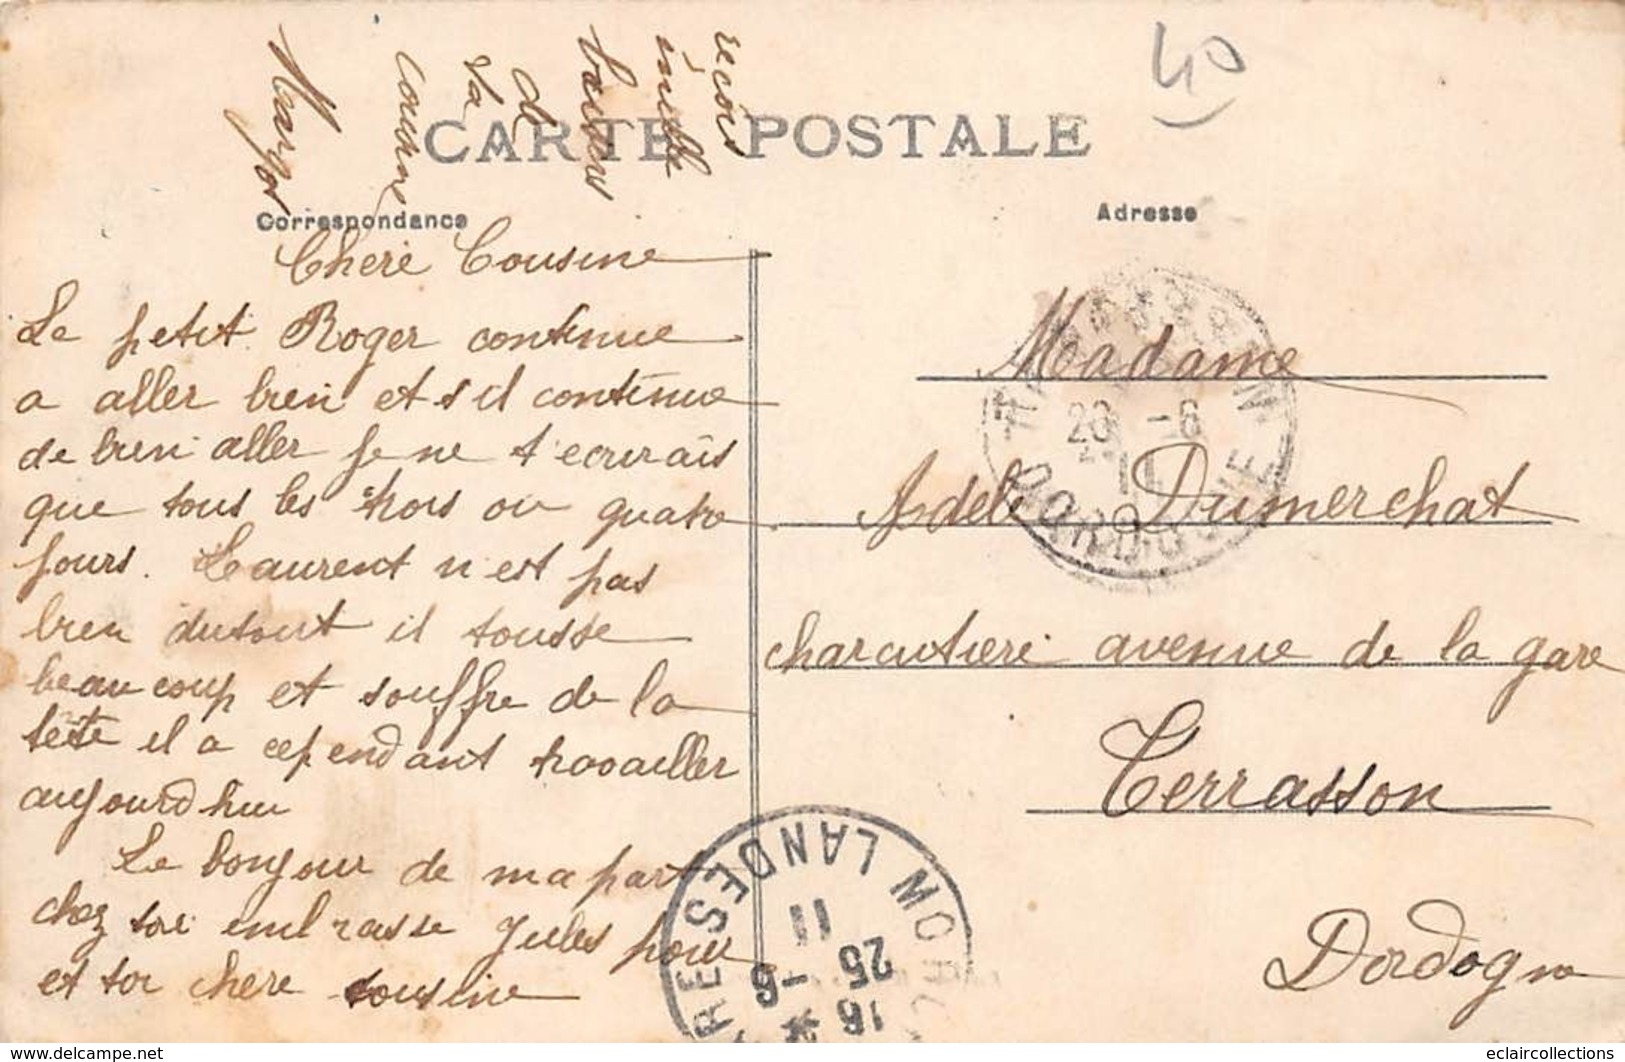 40
CARTE POSTALE
Correspondance
Adresse
Chere Cousine
Le petit Roger continue
a aller bien et s il continue
de bien aller je ne t'ecrirais
que tous les trois ou quatre
jours. Laurent n est pas
bien dutout il tousse
beaucoup et souffre de la
tête il a cependant travailler
aujourdhui
Le bonjour de ma part
chez toi embrasse Jules pour
et toi chere cousine
recois
mille
baisers
de
ta
cousine
Margot
Madame
Adele Dumerchat
charcutiere avenue de la gare
Terrasson
Dordogne
20 -6
11
DORDOGNE
LANDES
16
25 -6
11
eclaircollections